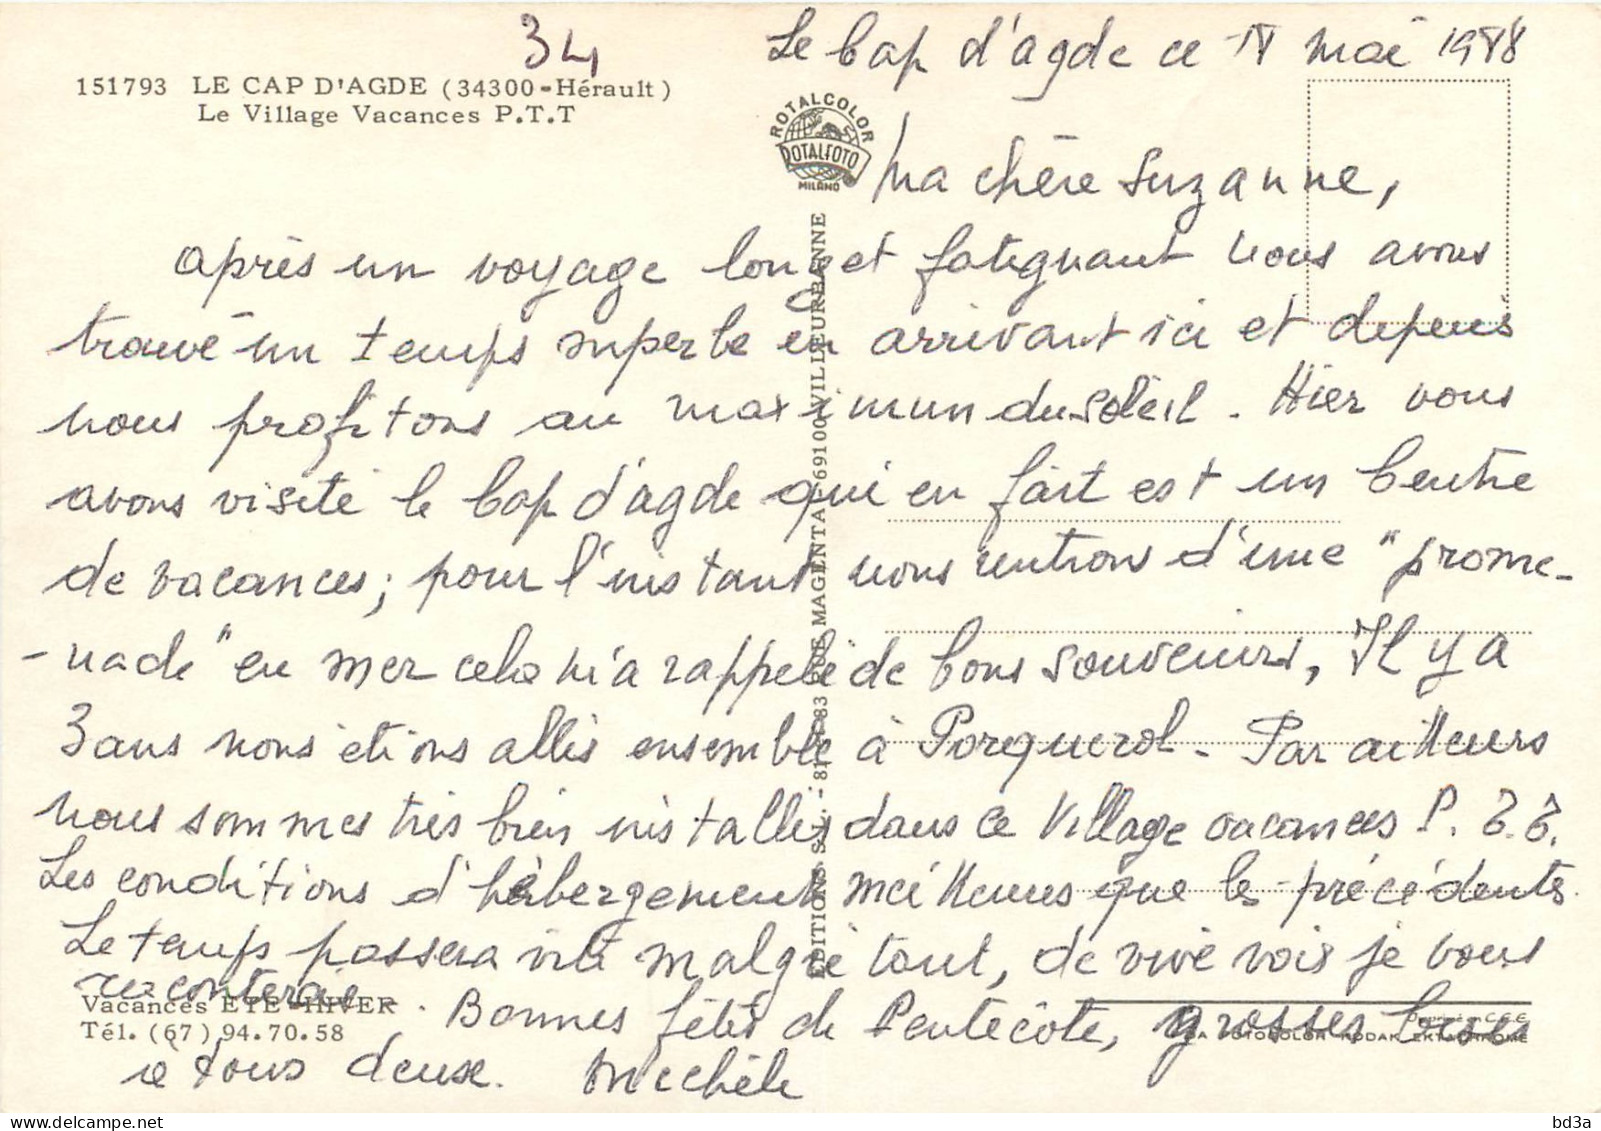 34
Le Cap d'agde ce 18 mai 1988
151793 LE CAP D'AGDE (34300-Hérault)
Le Village Vacances P.T.T
ROTALCOLOR
ROTALFOTO
MILANO
Ma chère Suzanne,
après un voyage long et fatiguant nous avons
trouvé un temps superbe en arrivant ici et depuis
nous profitons au maximun du soleil. Hier nous
avons visité le Cap d'agde qui en fait est un Centre
de vacances; pour l'instant nous rentrons d'une "prome-
-nade" en mer cela m'a rappelé de bons souvenirs, Il y a
3 ans nous étions allés ensemble à Porquerol - Par ailleurs
nous sommes très bien installés dans ce Village vacances P.T.T.
Les conditions d'hébergement meilleures que les précédents.
Le temps passera vite malgré tout, de vive voix je vous
raconterai. Bonnes fêtes de Pentecôte, grosses bises
à tous deux. Michèle
Vacances ETE-HIVER
Tél. (67) 94.70.58
EDITIONS S.L. - 81 83 RUE MAGENTA 69100 VILLEURBANNE
KODAK EKTACHROME
bd3a